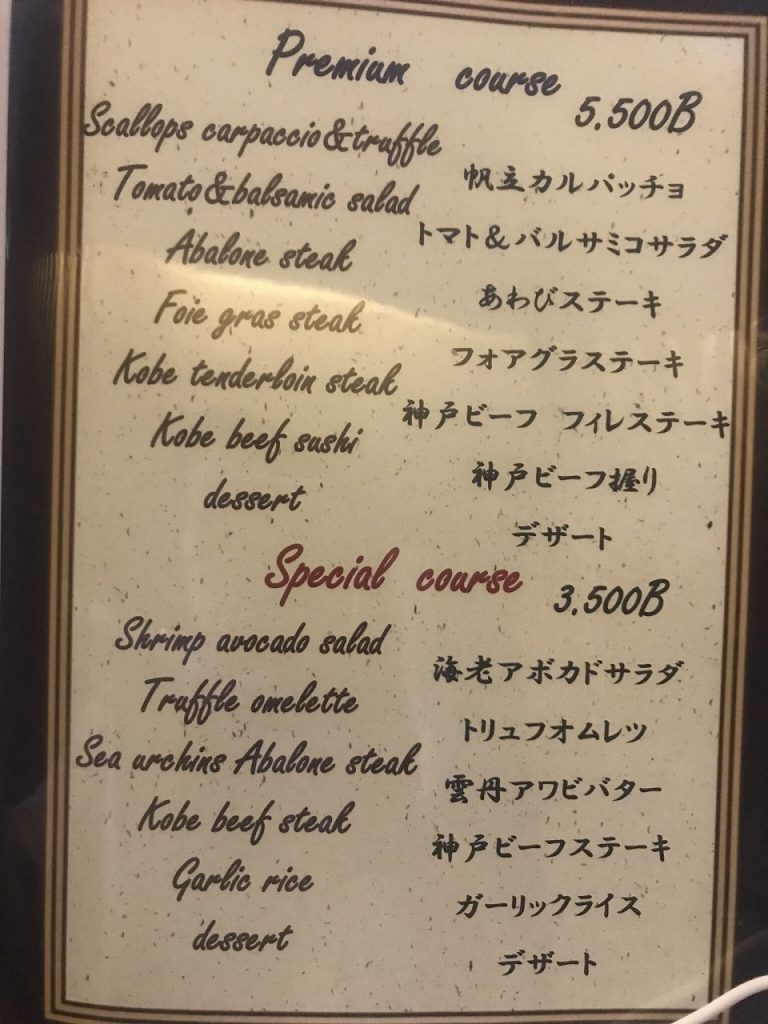 Premium course
5,500B
Scallops carpaccio&truffle
帆立カルパッチョ
Tomato&balsamic salad
トマト&バルサミコサラダ
Abalone steak
あわびステーキ
Foie gras steak
フォアグラステーキ
Kobe tenderloin steak
神戸ビーフ フィレステーキ
Kobe beef sushi
神戸ビーフ握り
dessert
デザート
Special course
3,500B
Shrimp avocado salad
海老アボカドサラダ
Truffle omelette
トリュフオムレツ
Sea urchins Abalone steak
雲丹アワビバター
Kobe beef steak
神戸ビーフステーキ
Garlic rice
ガーリックライス
dessert
デザート